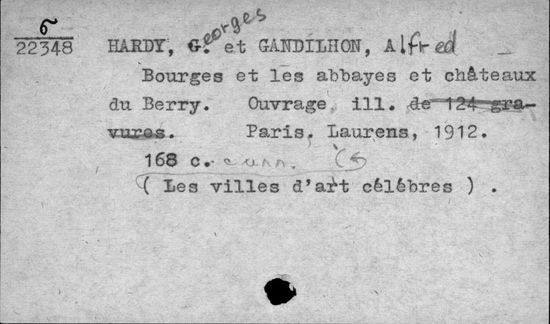 б
22348
HARDY, Georges et GANDILHON, Alfred
Bourges et les abbayes et châteaux
du Berry. Ouvrage ill. de 124 gra-
vures. Paris. Laurens, 1912.
168 c.
( Les villes d'art célébres ) .